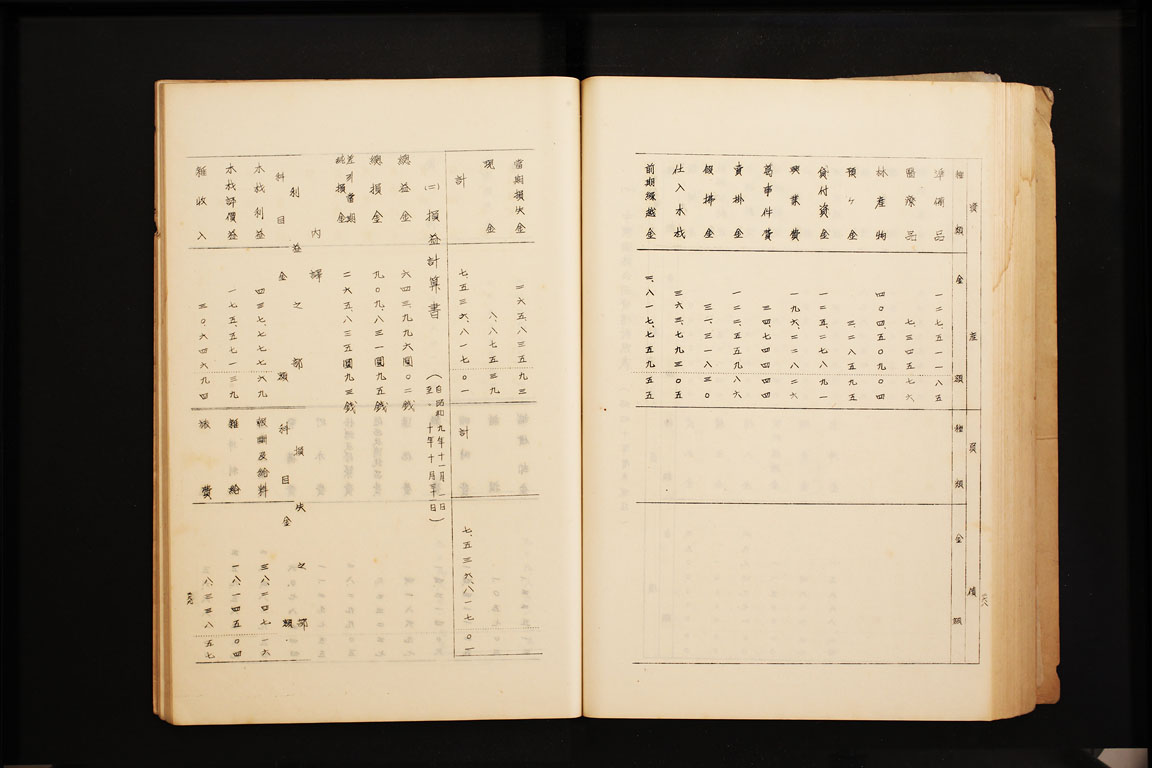 資産
負債
種類
金額
種類
金額
準備品 一二七、五一一八五
医療品 七、三四五七六
林産物 四〇四五〇九〇四
預ケ金 三二八五九五
貸付資金 一二五、二七八九一
興業費 一九六、二二八二六
萬事件費 三四、七四四四四
賣掛金 一二二、五五九八六
假拂金 三一、三一八三〇
仕入木材 三六三、七九三〇五
前期繰越金 三、八一七、七五九五五
六八
當期損失金 二六五、八三五九三
現金 八、八七五三九
計 七、五三六、八一七〇一
計 七、五三六、八一七〇一
(二) 損益計算書
(自昭和九年十一月一日
至〃十年十月三十日)
總益金 六四三、九九六圓〇二錢
總損金 九〇九、八三一圓九五錢
差引當期
純損金 二六五、八三五圓九三錢
内譯
利益之部
損失之部
科目
金額
科目
金額
木材利益 四三七、七七七六九
俸給及給料 三八、二四七一六
木材評價益 一七五、五七一三九
雜給 一八、一四五〇四
雜收入 三〇六四六九四
旅費 八、三三八五七
六九